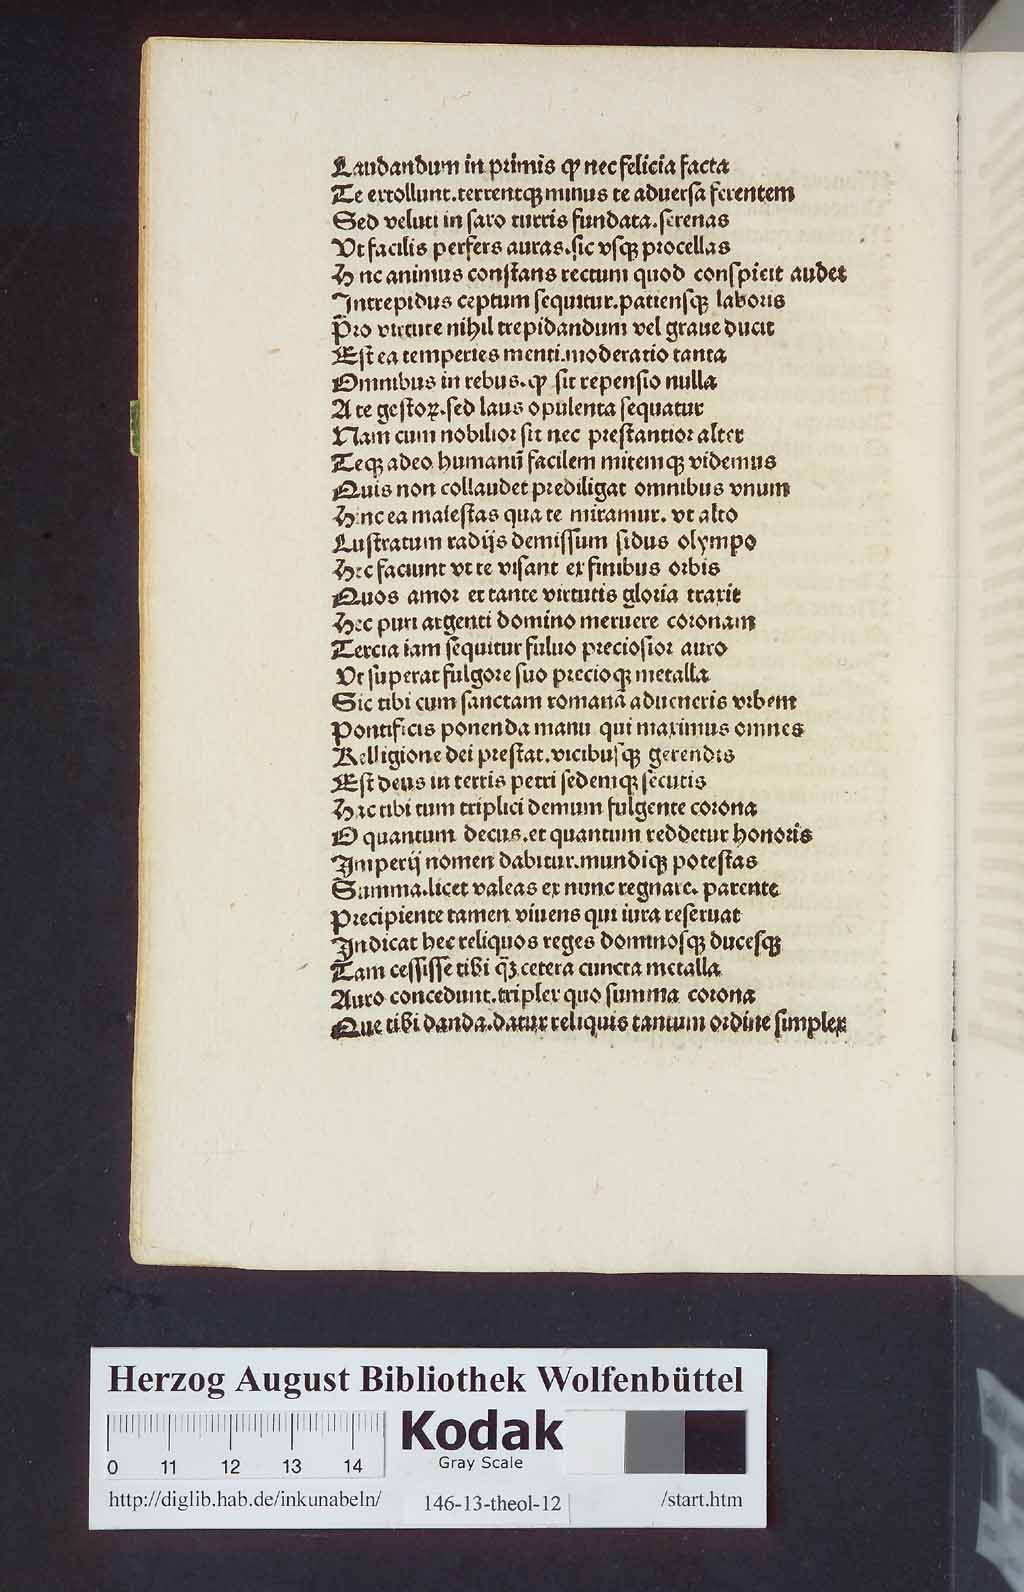 Laudandum in primis ꝙ nec felicia facta
Te extollunt.terrentqꝫ minus te aduersa ferentem
Sed veluti in saxo turris fundata.serenas
Vt facilis perfers auras.sic vsqꝫ procellas
Hinc animus constans rectum quod conspicit audet
Intrepidus ceptum sequitur.patiensqꝫ laboris
Pro virtute nihil trepidandum vel graue ducit
Est ea temperies menti.moderatio tanta
Omnibus in rebus.ꝙ sit repensio nulla
A te gestoꝝ.sed laus opulenta sequatur
Nam cum nobilior sit nec prestantior alter
Teqꝫ adeo humanū facilem mitemqꝫ videmus
Quis non collaudet prediligat omnibus vnum
Hinc ea maiestas qua te miramur. vt alto
Lustratum radijs demissum sidus olympo
Hec faciunt vt te visant ex finibus orbis
Quos amor et tante virtutis gloria traxit
Hec puri argenti domino meruere coronam
Tercia iam sequitur fuluo preciosior auro
Vt superat fulgore suo precioqꝫ metalla
Sic tibi cum sanctam romanā adueneris vrbem
Pontificis ponenda manu qui maximus omnes
Relligione dei prestat.vicibusqꝫ gerendis
Est deus in terris petri sedemqꝫ secutis
Hac tibi tum triplici demum fulgente corona
O quantum decus.et quantum reddetur honoris
Imperij nomen dabitur.mundiqꝫ potestas
Summa.licet valeas ex nunc regnare. parente
Precipiente tamen viuens qui iura reseruat
Indicat hec reliquos reges dominosqꝫ ducesqꝫ
Tam cessisse tibi q̄ꝫ cetera cuncta metalla
Auro concedunt.triplex quo summa corona
Que tibi danda.datur reliquis tantum ordine simplex
Herzog August Bibliothek Wolfenbüttel
Kodak
Gray Scale
0 11 12 13 14
http://diglib.hab.de/inkunabeln/ 146-13-theol-12 /start.htm